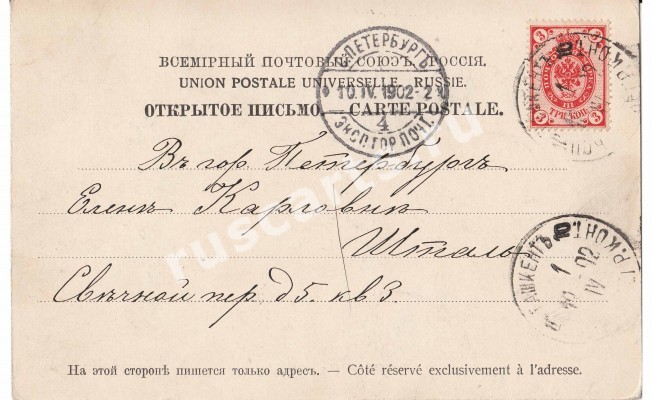 ВСЕМІРНЫЙ ПОЧТОВЫЙ СОЮЗЪ. РОССІЯ.
UNION POSTALE UNIVERSELLE. RUSSIE.
ОТКРЫТОЕ ПИСЬМО. — CARTE POSTALE.
С.ПЕТЕРБУРГЪ
10.IV.1902-2
4
ЭКСП.ГОР.ПОЧТ.
3 3
ТРИ КОП.
3 3
Въ гор. Петербургъ
Еленѣ Карловнѣ
Шталь
Свѣчной пер. д 5. кв 3.
ТАШКЕНТЪ
1
IV 02
На этой сторонѣ пишется только адресъ. — Côté réservé exclusivement à l'adresse.
ruscarts.ru